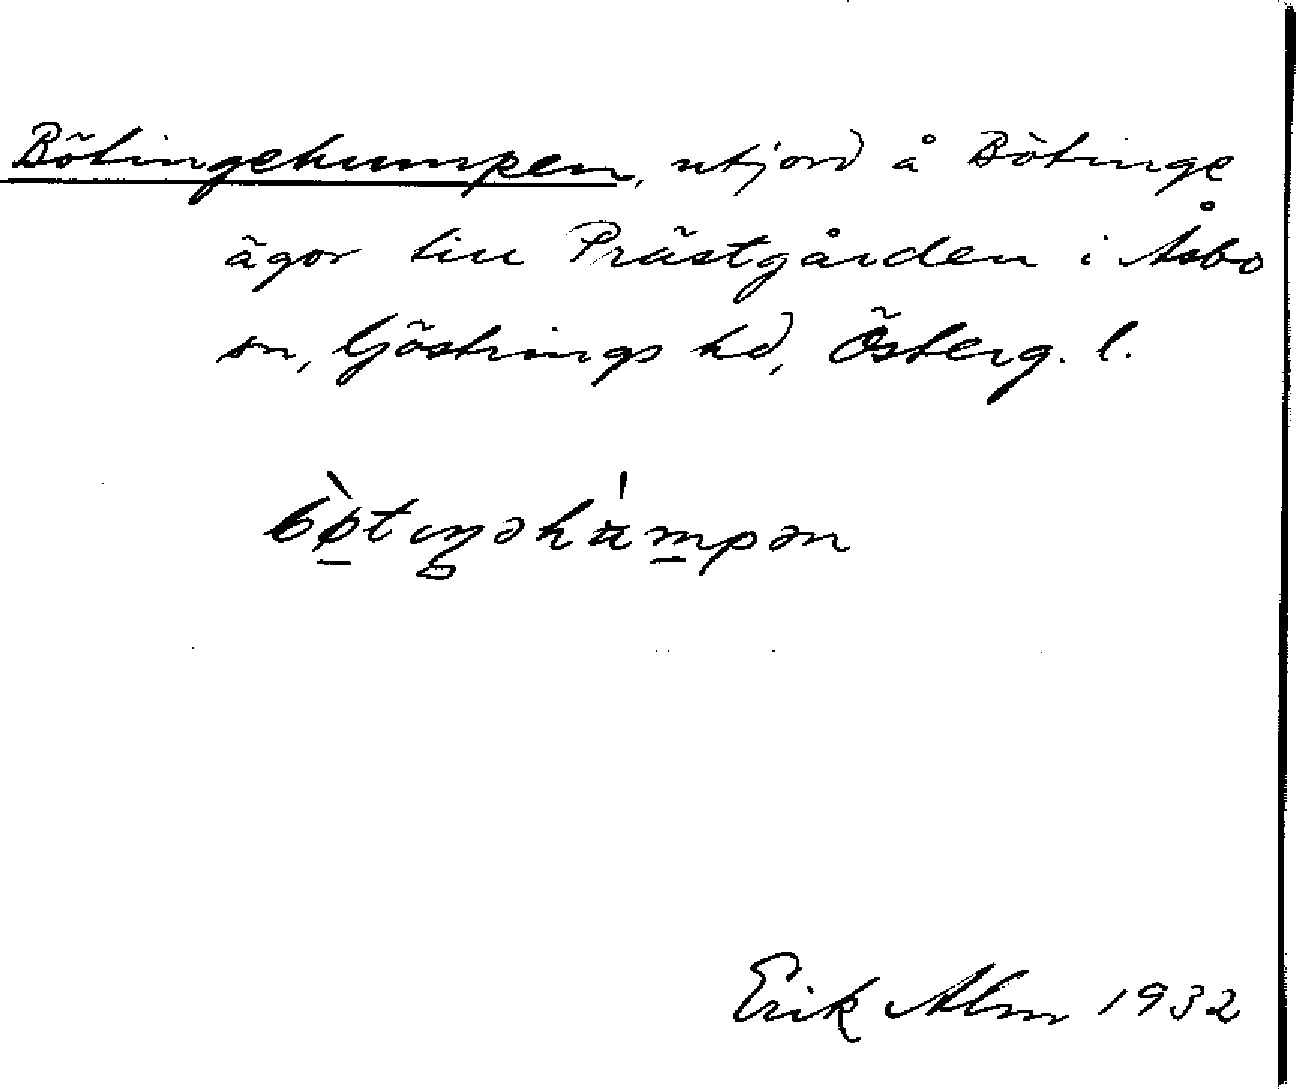 Bötingehumpen, utjord å Bötinge
ägor till Prästgården i Åsbo
sn, Göstrings hd, Österg. l.
bø̀tıŋəhu̇mpən
Erik Alm 1932